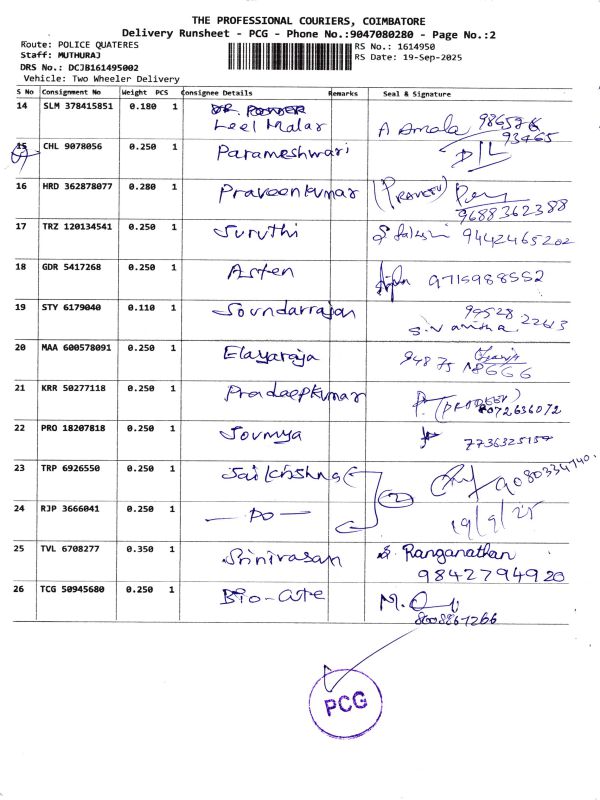 THE PROFESSIONAL COURIERS, COIMBATORE
Delivery Runsheet - PCG - Phone No.:9047080280 - Page No.:2
Route: POLICE QUATERES RS No.: 1614950
Staff: MUTHURAJ RS Date: 19-Sep-2025
DRS No.: DCJB161495002
Vehicle: Two Wheeler Delivery
S No Consignment No Weight PCS Consignee Details Remarks Seal & Signature
14 SLM 378415851 0.180 1 Leel Malar A Amala
15 CHL 9078056 0.250 1 Parameshwari D/L
16 HRD 362878077 0.280 1 Praveenkumar (PRAVEEN) 9688362388
17 TRZ 120134541 0.250 1 Suruthi 9442465202
18 GDR 5417268 0.250 1 Asten 9715988552
19 STY 6179040 0.110 1 Soundarrajan 99528 22613
20 MAA 600578091 0.250 1 Elayaraja 94875
21 KRR 50277118 0.250 1 Pradeepkumar P. (PRADEEP) 8072636072
22 PRO 18207818 0.250 1 Sowmya 7736325157
23 TRP 6926550 0.250 1 Saikrishna 2 9080334740.
24 RJP 3666041 0.250 1 — DO — 19/9/25
25 TVL 6708277 0.350 1 Srinivasan S. Ranganathan
9842794920
26 TCG 50945680 0.250 1 Bio-cute M.
8608267266
PCG